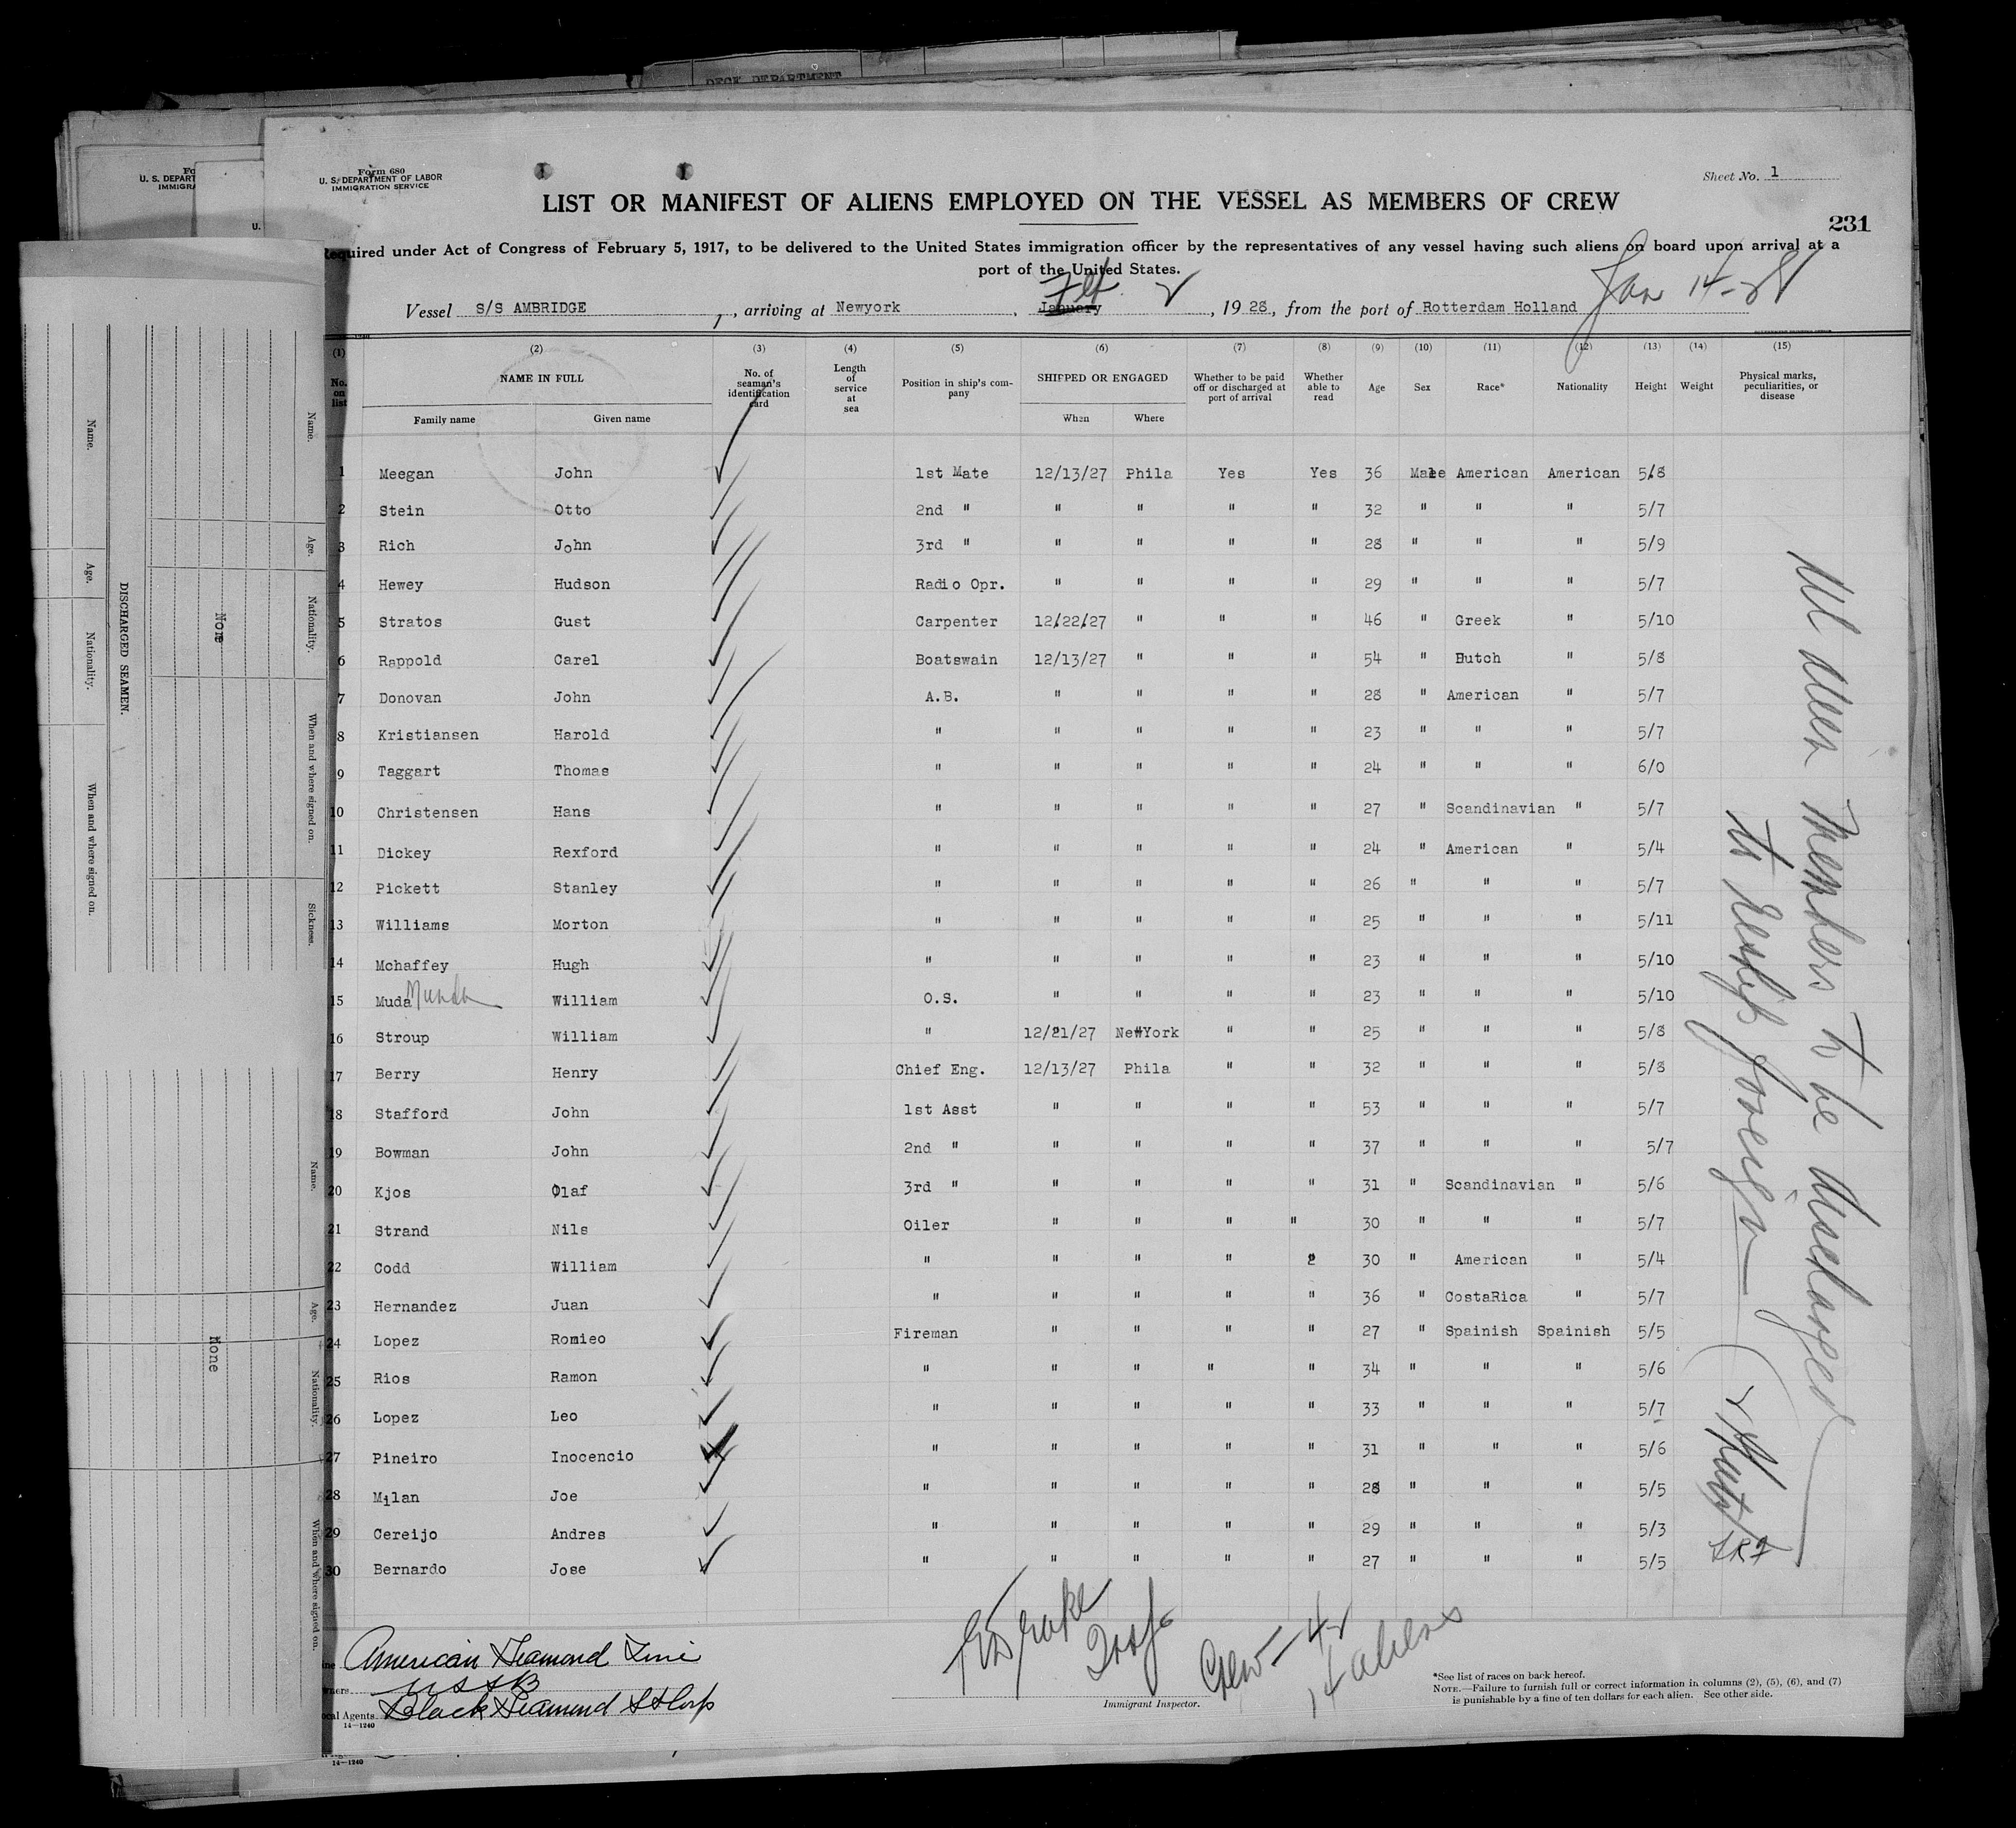 DECK DEPARTMENT
Form 680
U. S. DEPARTMENT OF LABOR
IMMIGRATION SERVICE
Sheet No. 1
LIST OR MANIFEST OF ALIENS EMPLOYED ON THE VESSEL AS MEMBERS OF CREW
231
Required under Act of Congress of February 5, 1917, to be delivered to the United States immigration officer by the representatives of any vessel having such aliens on board upon arrival at a
port of the United States.
Vessel S/S AMBRIDGE, arriving at Newyork, January Feb. 2, 1928, from the port of Rotterdam Holland Jan 14-28
(1) (2) (3) (4) (5) (6) (7) (8) (9) (10) (11) (12) (13) (14) (15)
No. on list NAME IN FULL No. of seaman's identification card Length of service at sea Position in ship's company SHIPPED OR ENGAGED Whether to be paid off or discharged at port of arrival Whether able to read Age Sex Race* Nationality Height Weight Physical marks, peculiarities, or disease
Family name Given name When Where
1 Meegan John 1st Mate 12/13/27 Phila Yes Yes 36 Male American American 5/8
2 Stein Otto 2nd " " " " " 32 " " " 5/7
3 Rich John 3rd " " " " " 28 " " " 5/9
4 Hewey Hudson Radio Opr. " " " " 29 " " " 5/7
5 Stratos Gust Carpenter 12/22/27 " " " 46 " Greek " 5/10
6 Rappold Carel Boatswain 12/13/27 " " " 54 " Dutch " 5/8
7 Donovan John A.B. " " " " 28 " American " 5/7
8 Kristiansen Harold " " " " " 23 " " " 5/7
9 Taggart Thomas " " " " " 24 " " " 6/0
10 Christensen Hans " " " " " 27 " Scandinavian " 5/7
11 Dickey Rexford " " " " " 24 " American " 5/4
12 Pickett Stanley " " " " " 26 " " " 5/7
13 Williams Morton " " " " " 25 " " " 5/11
14 Mchaffey Hugh " " " " " 23 " " " 5/10
15 Muda Munda William O.S. " " " " 23 " " " 5/10
16 Stroup William " 12/21/27 NewYork " " 25 " " " 5/8
17 Berry Henry Chief Eng. 12/13/27 Phila " " 32 " " " 5/8
18 Stafford John 1st Asst " " " " 53 " " " 5/7
19 Bowman John 2nd " " " " " 37 " " " 5/7
20 Kjos Olaf 3rd " " " " " 31 " Scandinavian " 5/6
21 Strand Nils Oiler " " " " 30 " " " 5/7
22 Codd William " " " " " 30 " American " 5/4
23 Hernandez Juan " " " " " 36 " CostaRica " 5/7
24 Lopez Romieo Fireman " " " " 27 " Spainish Spainish 5/5
25 Rios Ramon " " " " " 34 " " " 5/6
26 Lopez Leo " " " " " 33 " " " 5/7
27 Pineiro Inocencio " " " " " 31 " " " 5/6
28 Milan Joe " " " " " 28 " " " 5/5
29 Cereijo Andres " " " " " 29 " " " 5/3
30 Bernardo Jose " " " " " 27 " " " 5/5
All alien members to be discharged
to reship foreign
Line American Diamond Line
Owners USSB
Local Agents. Black Diamond SS Corp
14—1240
Immigrant Inspector.
Crew—42
14 aliens
*See list of races on back hereof.
NOTE.—Failure to furnish full or correct information in columns (2), (5), (6), and (7)
is punishable by a fine of ten dollars for each alien. See other side.
14—1240
DISCHARGED SEAMEN.
Name. Age. Nationality. When and where signed on.
Name. Age. Nationality. When and where signed on. Sickness.
None
Name. Age. Nationality. When and where signed on.
None